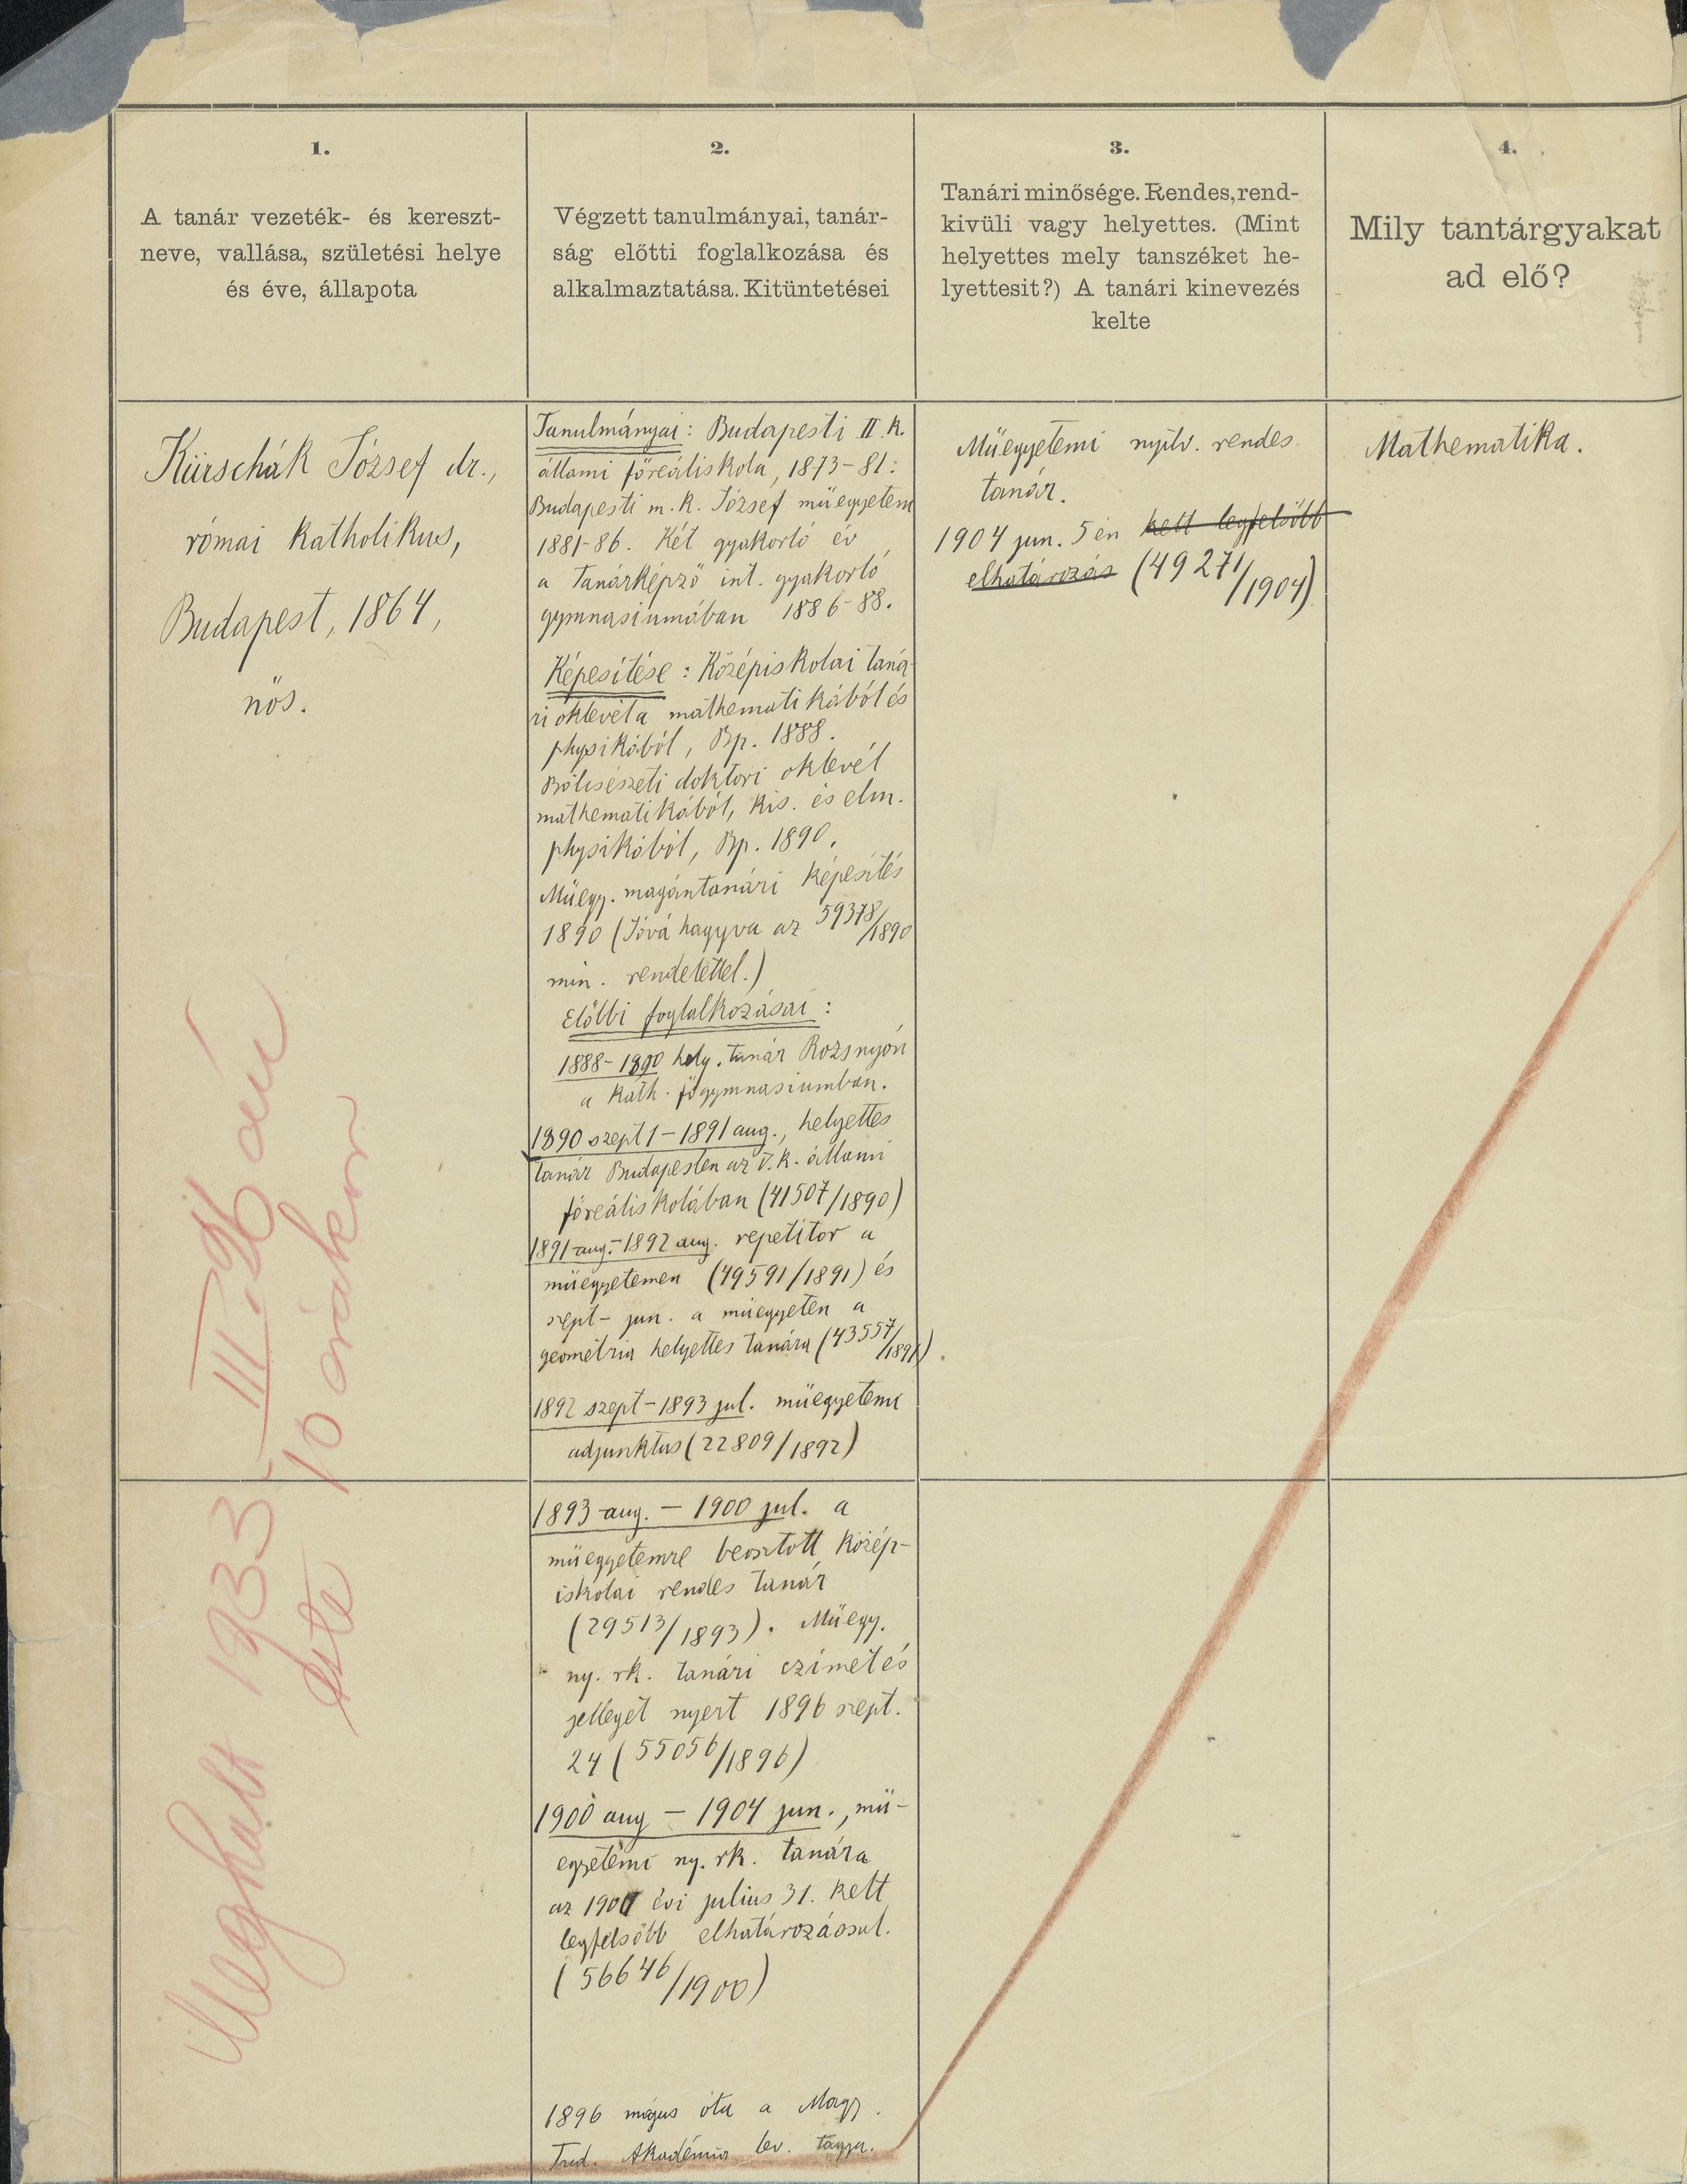 1.
A tanár vezeték- és kereszt-
neve, vallása, születési helye
és éve, állapota
2.
Végzett tanulmányai, tanár-
ság előtti foglalkozása és
alkalmaztatása. Kitüntetései
3.
Tanári minősége. Rendes, rend-
kivüli vagy helyettes. (Mint
helyettes mely tanszéket he-
lyettesit?) A tanári kinevezés
kelte
4.
Mily tantárgyakat
ad elő?
Kürschák József dr.,
római katholikus,
Budapest, 1864,
nős.
Meghalt 1933-III.26 án
este 10 órakor
Tanulmányai: Budapesti II. k.
állami főreáliskola, 1873-81:
Budapesti m. k. József müegyetem
1881-86. Két gyakorló év
a tanárképző int. gyakorló
gymnasiumában 1886-88.
Képesítése: Középiskolai taná-
ri oklevél a mathematikából és
physikából, Bp. 1888.
Bölcsészeti doktori oklevél
mathematikából, kis. és elm.
physikából, Bp. 1890.
Müegy. magántanári képesítés
1890 (Jóvá hagyva az 59378/1890
min. rendelettel.)
Előbbi foglalkozásai:
1888-1890 hely. tanár Rozsnyón
a kath. főgymnasiumban.
1890 szept 1 - 1891 aug., helyettes
tanár Budapesten az V. k. állami
főreáliskolában (41507/1890)
1891 aug.-1892 aug. repetitor a
müegyetemen (49591/1891) és
szept - jun. a müegyeten a
geometria helyettes tanára (43557/1891).
1892 szept - 1893 jul. müegyetemi
adjunktus (22809/1892)
1893 aug. - 1900 jul. a
müegyetemre beosztott közép-
iskolai rendes tanár
(29513/1893). Müegy.
ny. rk. tanári czímet és
jelleget nyert 1896 szept.
24 (55056/1896)
1900 aug - 1904 jun., mü-
egyetemi ny. rk. tanára
az 1900 évi julius 31. kelt
legfelsőbb elhatározással.
(56646/1900)
1896 május óta a Magy.
Tud. Akadémia lev. tagja.
Müegyetemi nyilv. rendes
tanár.
1904 jun. 5 én kelt legfelsőbb
elhatározás (49271/1904)
Mathematika.